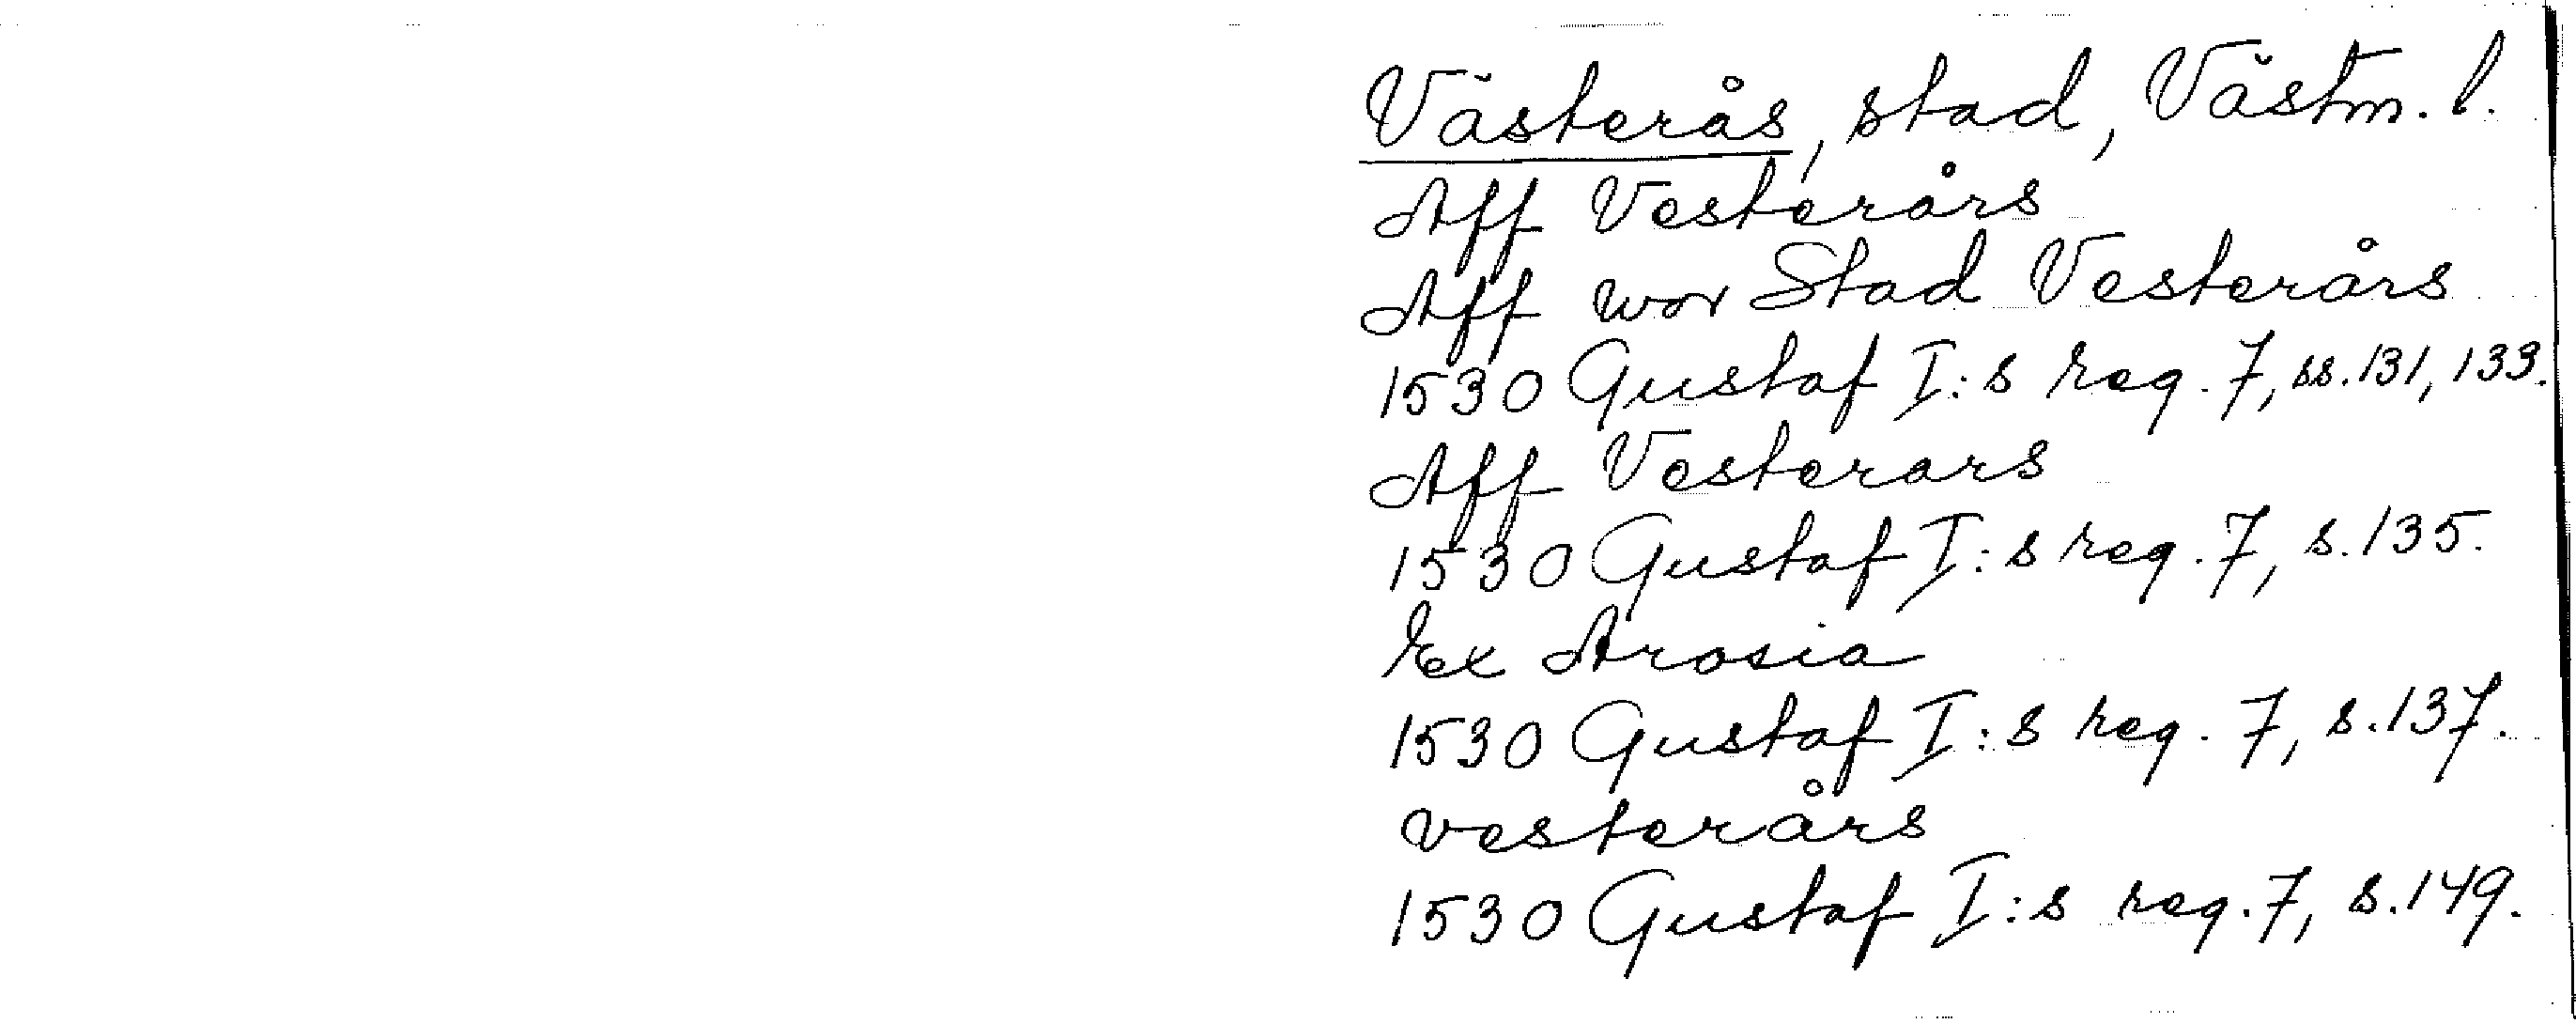 Västerås, stad, Västm. l.
Aff Vesterårs
Aff wor Stad Vesterårs
1530 Gustaf I:s reg. 7, ss. 131, 133.
Aff Vesterars
1530 Gustaf I:s reg. 7, s. 135.
Ex Arosia
1530 Gustaf I:s reg. 7, s. 137.
vesterårs
1530 Gustaf I:s reg. 7, s. 149.